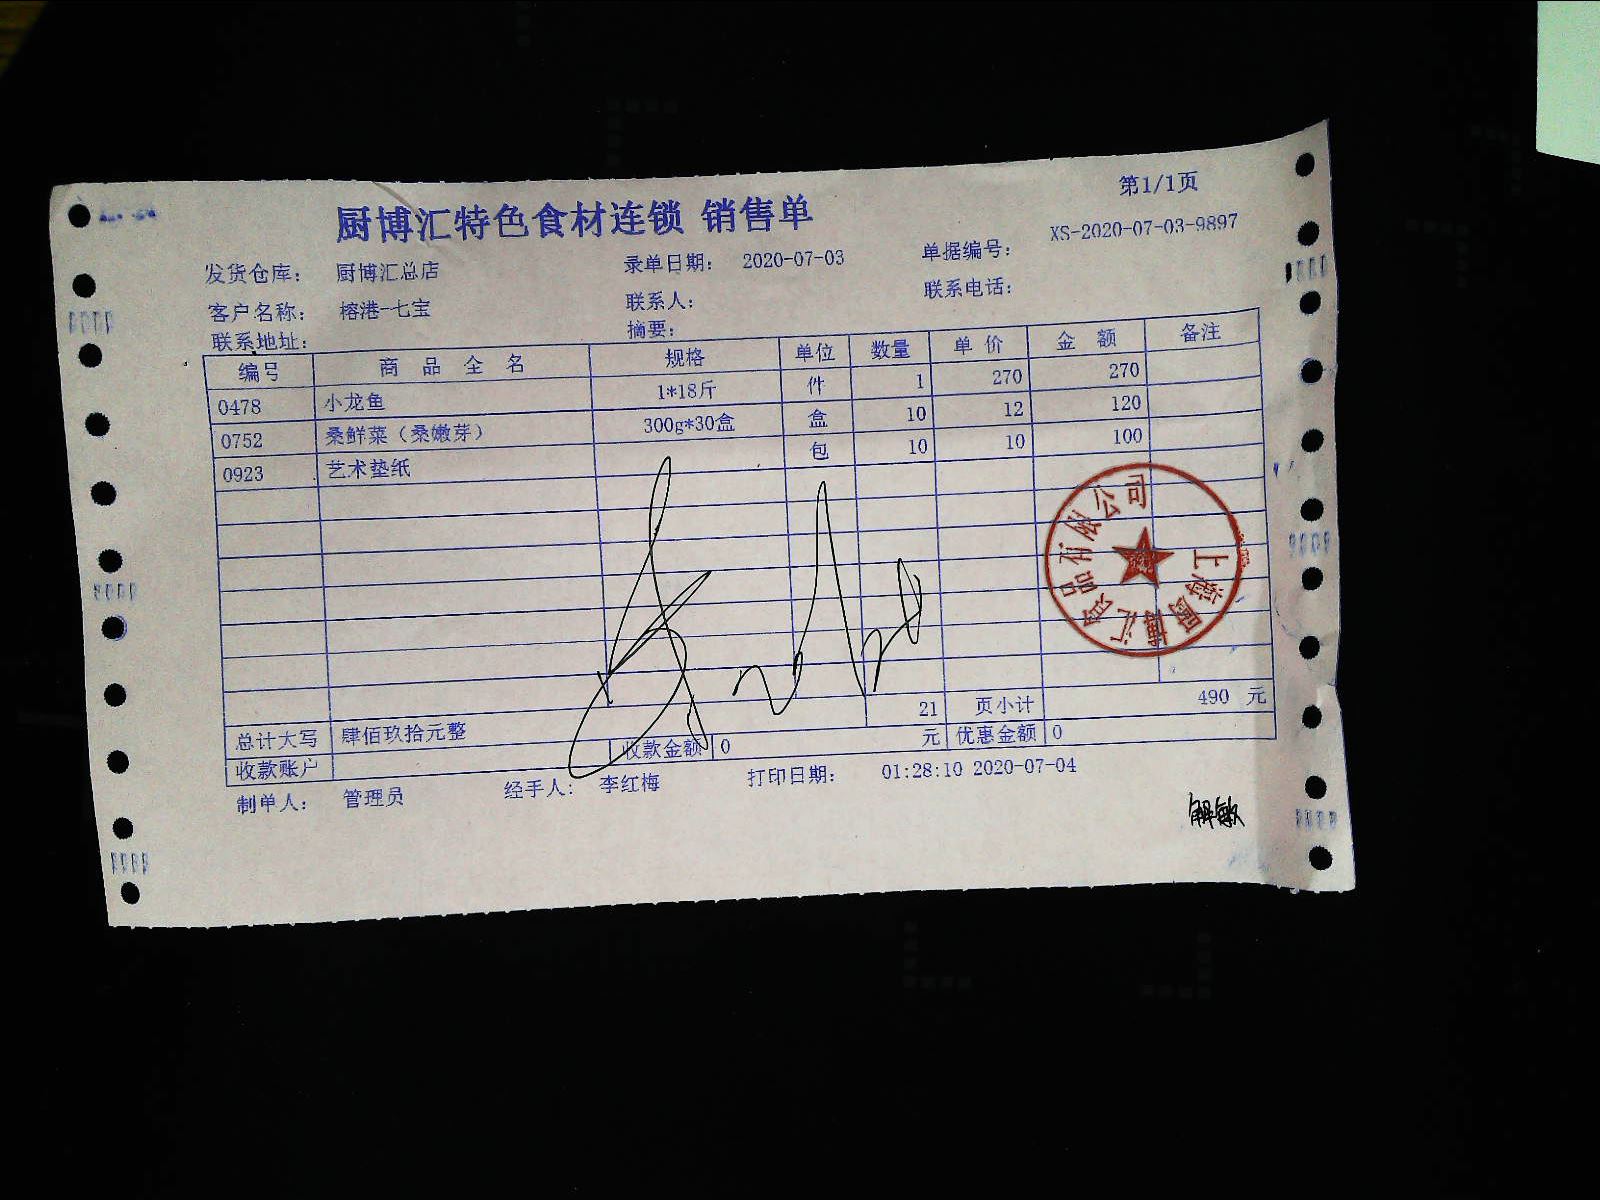 第1/1页
厨博汇特色食材连锁 销售单
发货仓库： 厨博汇总店 录单日期： 2020-07-03 单据编号： XS-2020-07-03-9897
客户名称： 榕港-七宝 联系人： 联系电话：
联系地址： 摘要：
编号 商 品 全 名 规格 单位 数量 单 价 金 额 备注
0478 小龙鱼 1*18斤 件 1 270 270
0752 桑鲜菜（桑嫩芽） 300g*30盒 盒 10 12 120
0923 艺术垫纸 包 10 10 100
上海 博汇食品有限公司
21 页小计 490 元
总计大写 肆佰玖拾元整
收款账户 收款金额 0 元 优惠金额 0
制单人： 管理员 经手人： 李红梅 打印日期： 01:28:10 2020-07-04
解敏